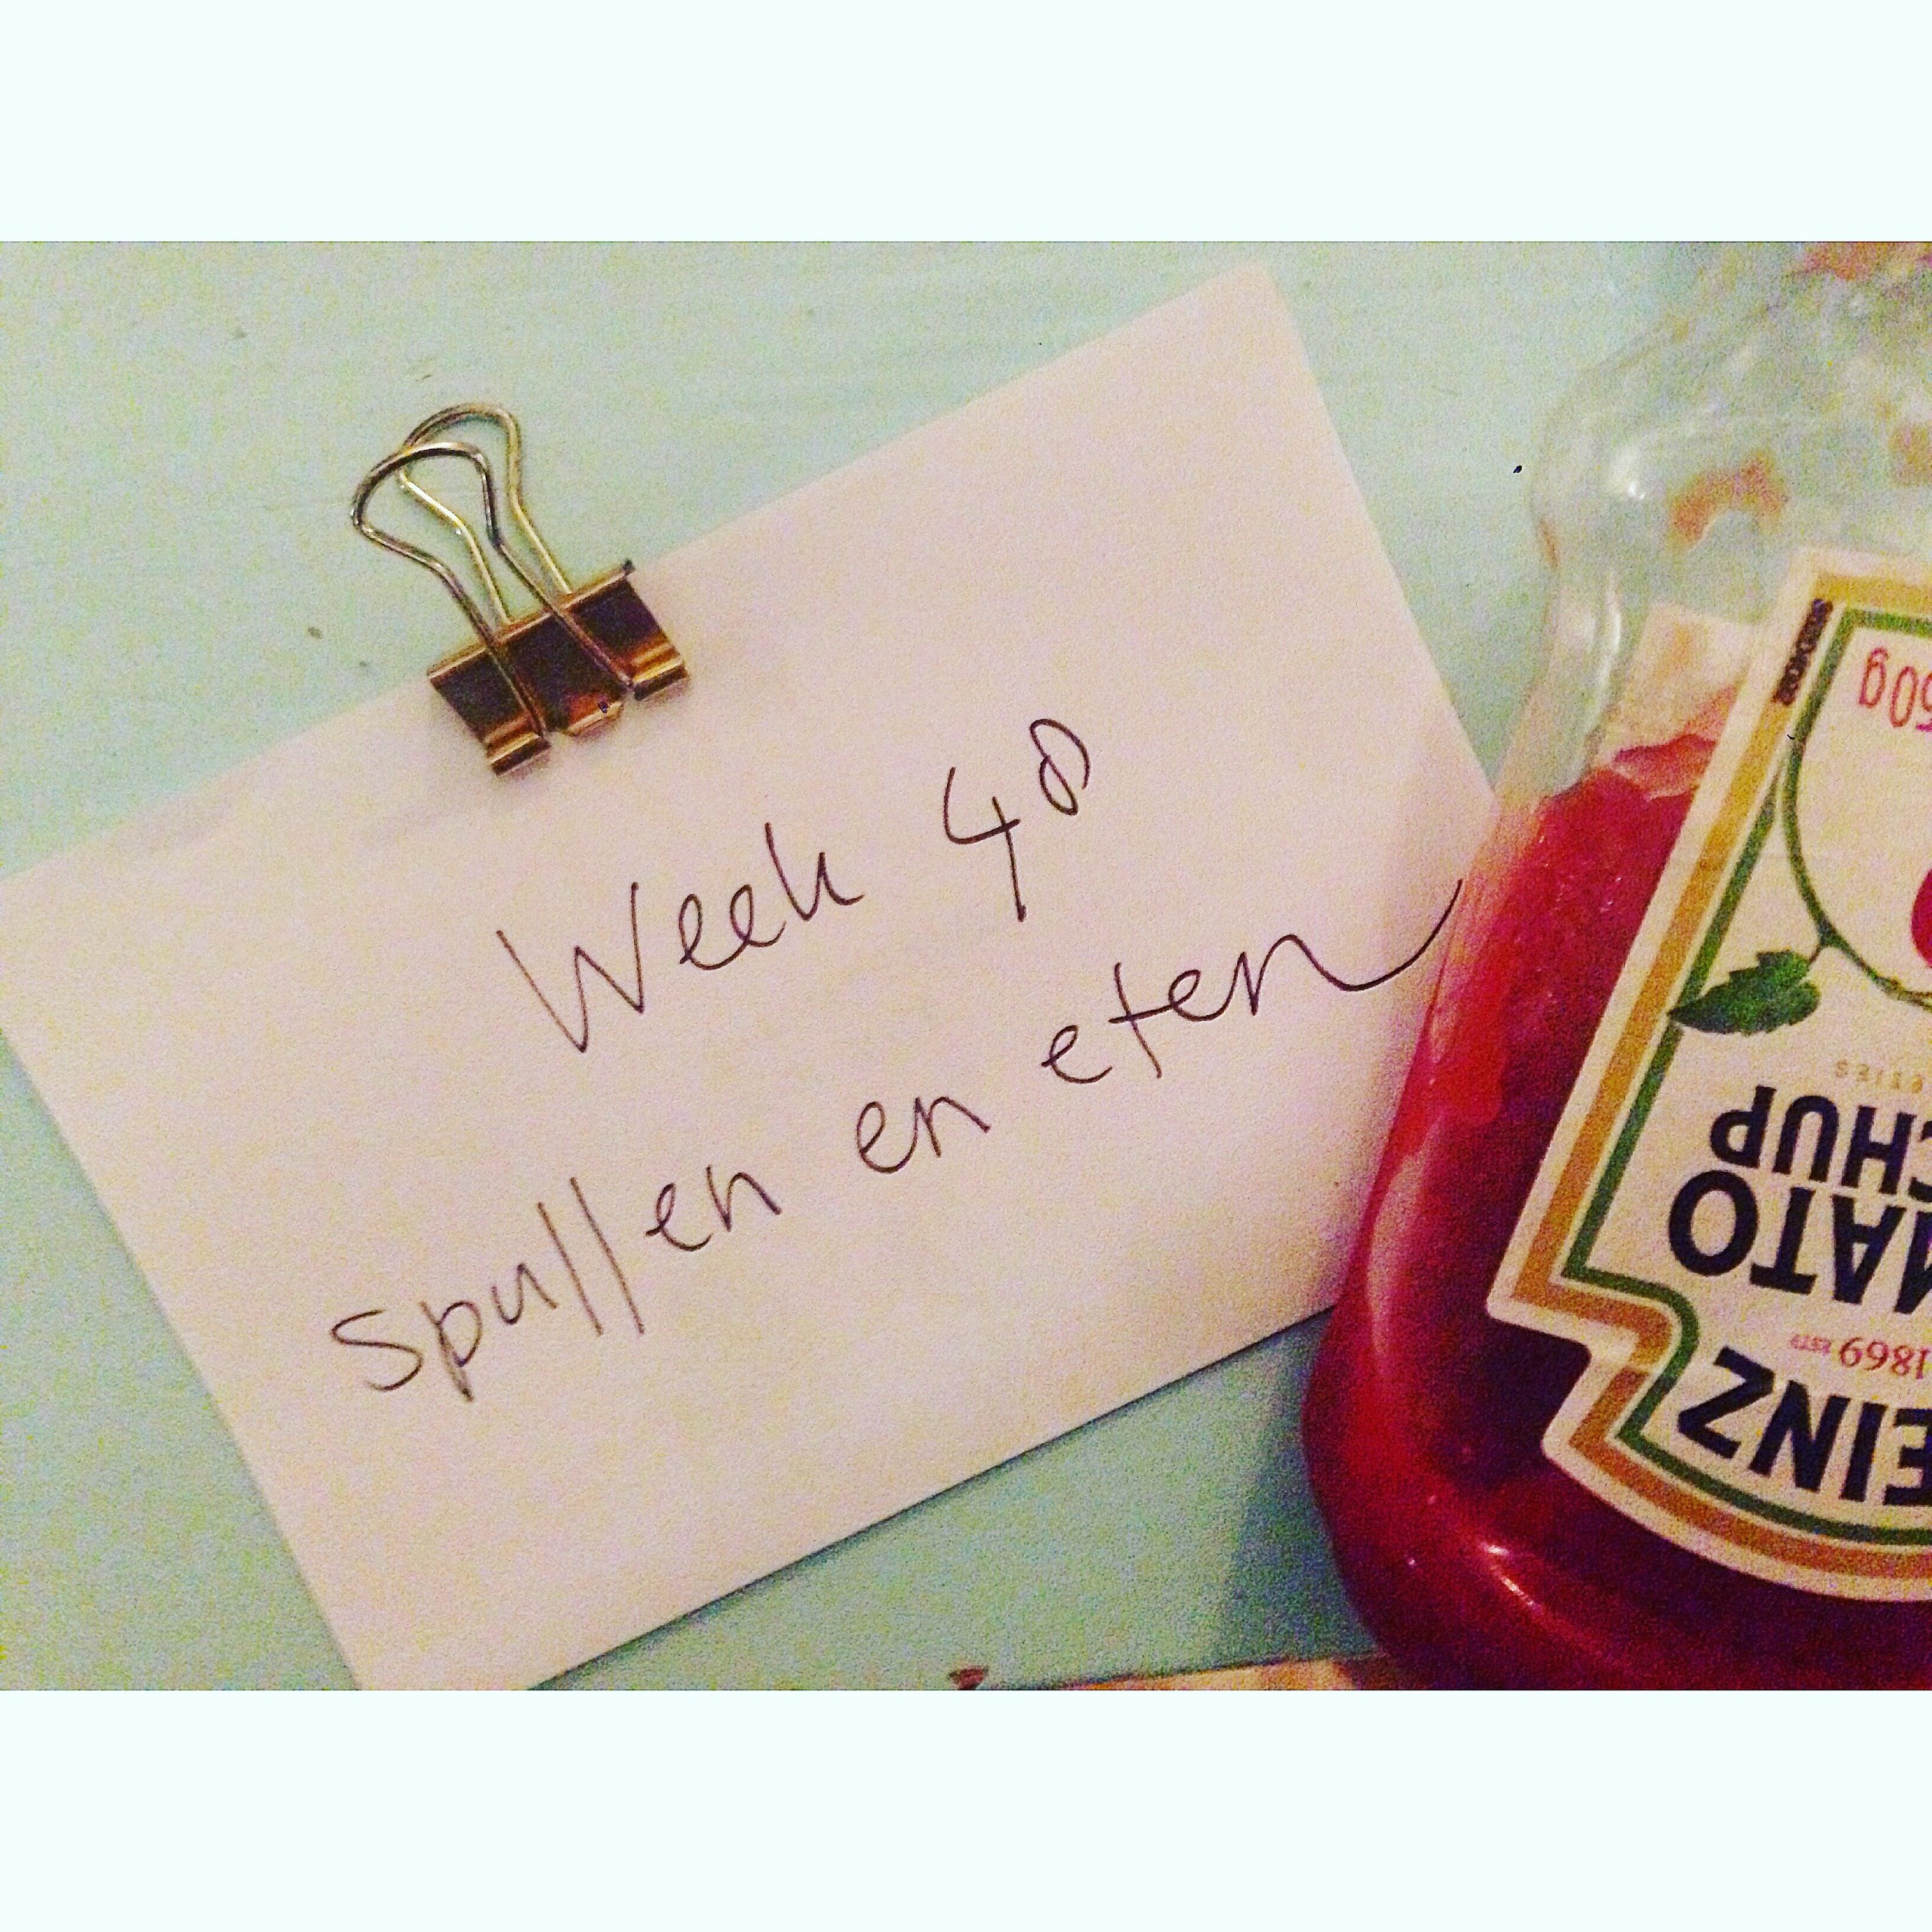 Week 40
Spullen en eten
50g
MATO
CHUP
1869 ESTD
EINZ